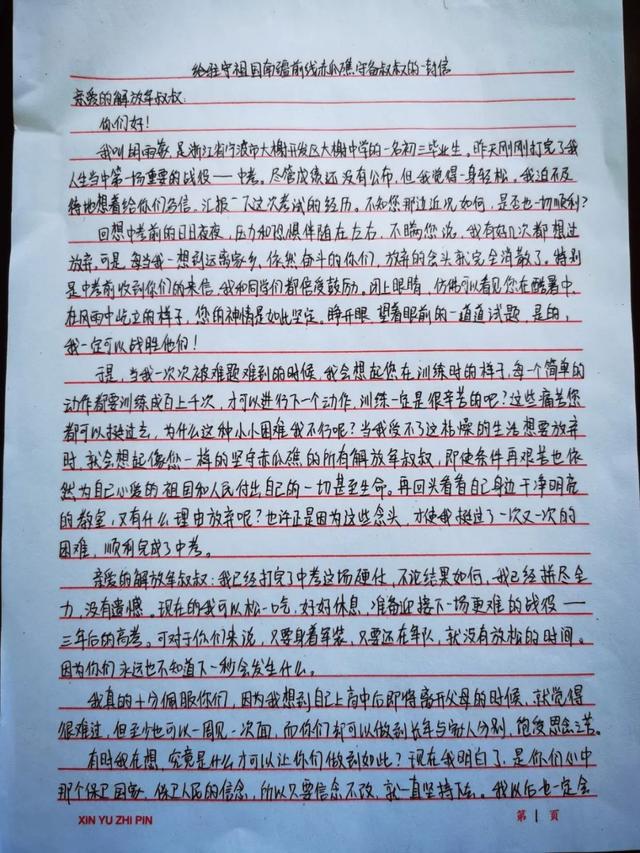 给驻守祖国南疆前线赤瓜礁守备叔叔的一封信
亲爱的解放军叔叔：
你们好！
我叫田雨蒙，是浙江省宁波市大榭开发区大榭中学的一名初三毕业生。昨天刚刚打完了我
人生当中第一场重要的战役——中考。尽管成绩还没有公布，但我觉得一身轻松，我迫不及
待地想着给你们写信，汇报一下这次考试的经历。不知您那边近况如何，是否也一切顺利？
回想中考前的日日夜夜，压力和恐惧伴随在左右，不瞒您说，我有好几次都想过
放弃，可是，每当我一想到远离家乡，依然奋斗的你们，放弃的念头就完全消散了，特别
是中考前收到你们的来信，我和同学们都倍受鼓励。闭上眼睛，仿佛可以看见您在酷暑中，
在风雨中屹立的样子，您的神情是如此坚定。睁开眼，望着眼前的一道道试题，是的，
我一定可以战胜他们！
于是，当我一次次被难题难到的时候，我会想起您在训练时的样子，每一个简单的
动作都要训练成百上千次，才可以进行下一个动作，训练一定是很辛苦的吧？这些痛苦您
都可以挺过去，为什么这种小小困难我不行呢？当我受不了这枯燥的生活想要放弃
时，就会想起像您一样的坚守赤瓜礁的所有解放军叔叔，即使条件再艰苦也依
然为自己心爱的祖国和人民付出自己的一切甚至生命。再回头看看自己身边干净明亮
的教室，又有什么理由放弃呢？也许正是因为这些念头，才使我挺过了一次又一次的
困难，顺利完成了中考。
亲爱的解放军叔叔：我已经打完了中考这场硬仗，不论结果如何，我已经拼尽全
力，没有遗憾。现在的我可以松一口气，好好休息，准备迎接下一场更难的战役——
三年后的高考。可对于你们来说，只要身着军装，只要还在军队，就没有放松的时间。
因为你们永远也不知道下一秒会发生什么。
我真的十分佩服你们，因为我想到自己上高中后即将离开父母的时候，就觉得
很难过，但至少也可以一周见一次面，而你们却可以做到长年与家人分别，饱受思念之苦。
有时我在想，究竟是什么才可以让你们做到如此？现在我明白了，是你们心中
那个保卫国家，保卫人民的信念，所以只要信念不改，就一直坚持下去。我以后也一定会
XIN YU ZHI PIN
第 1 页